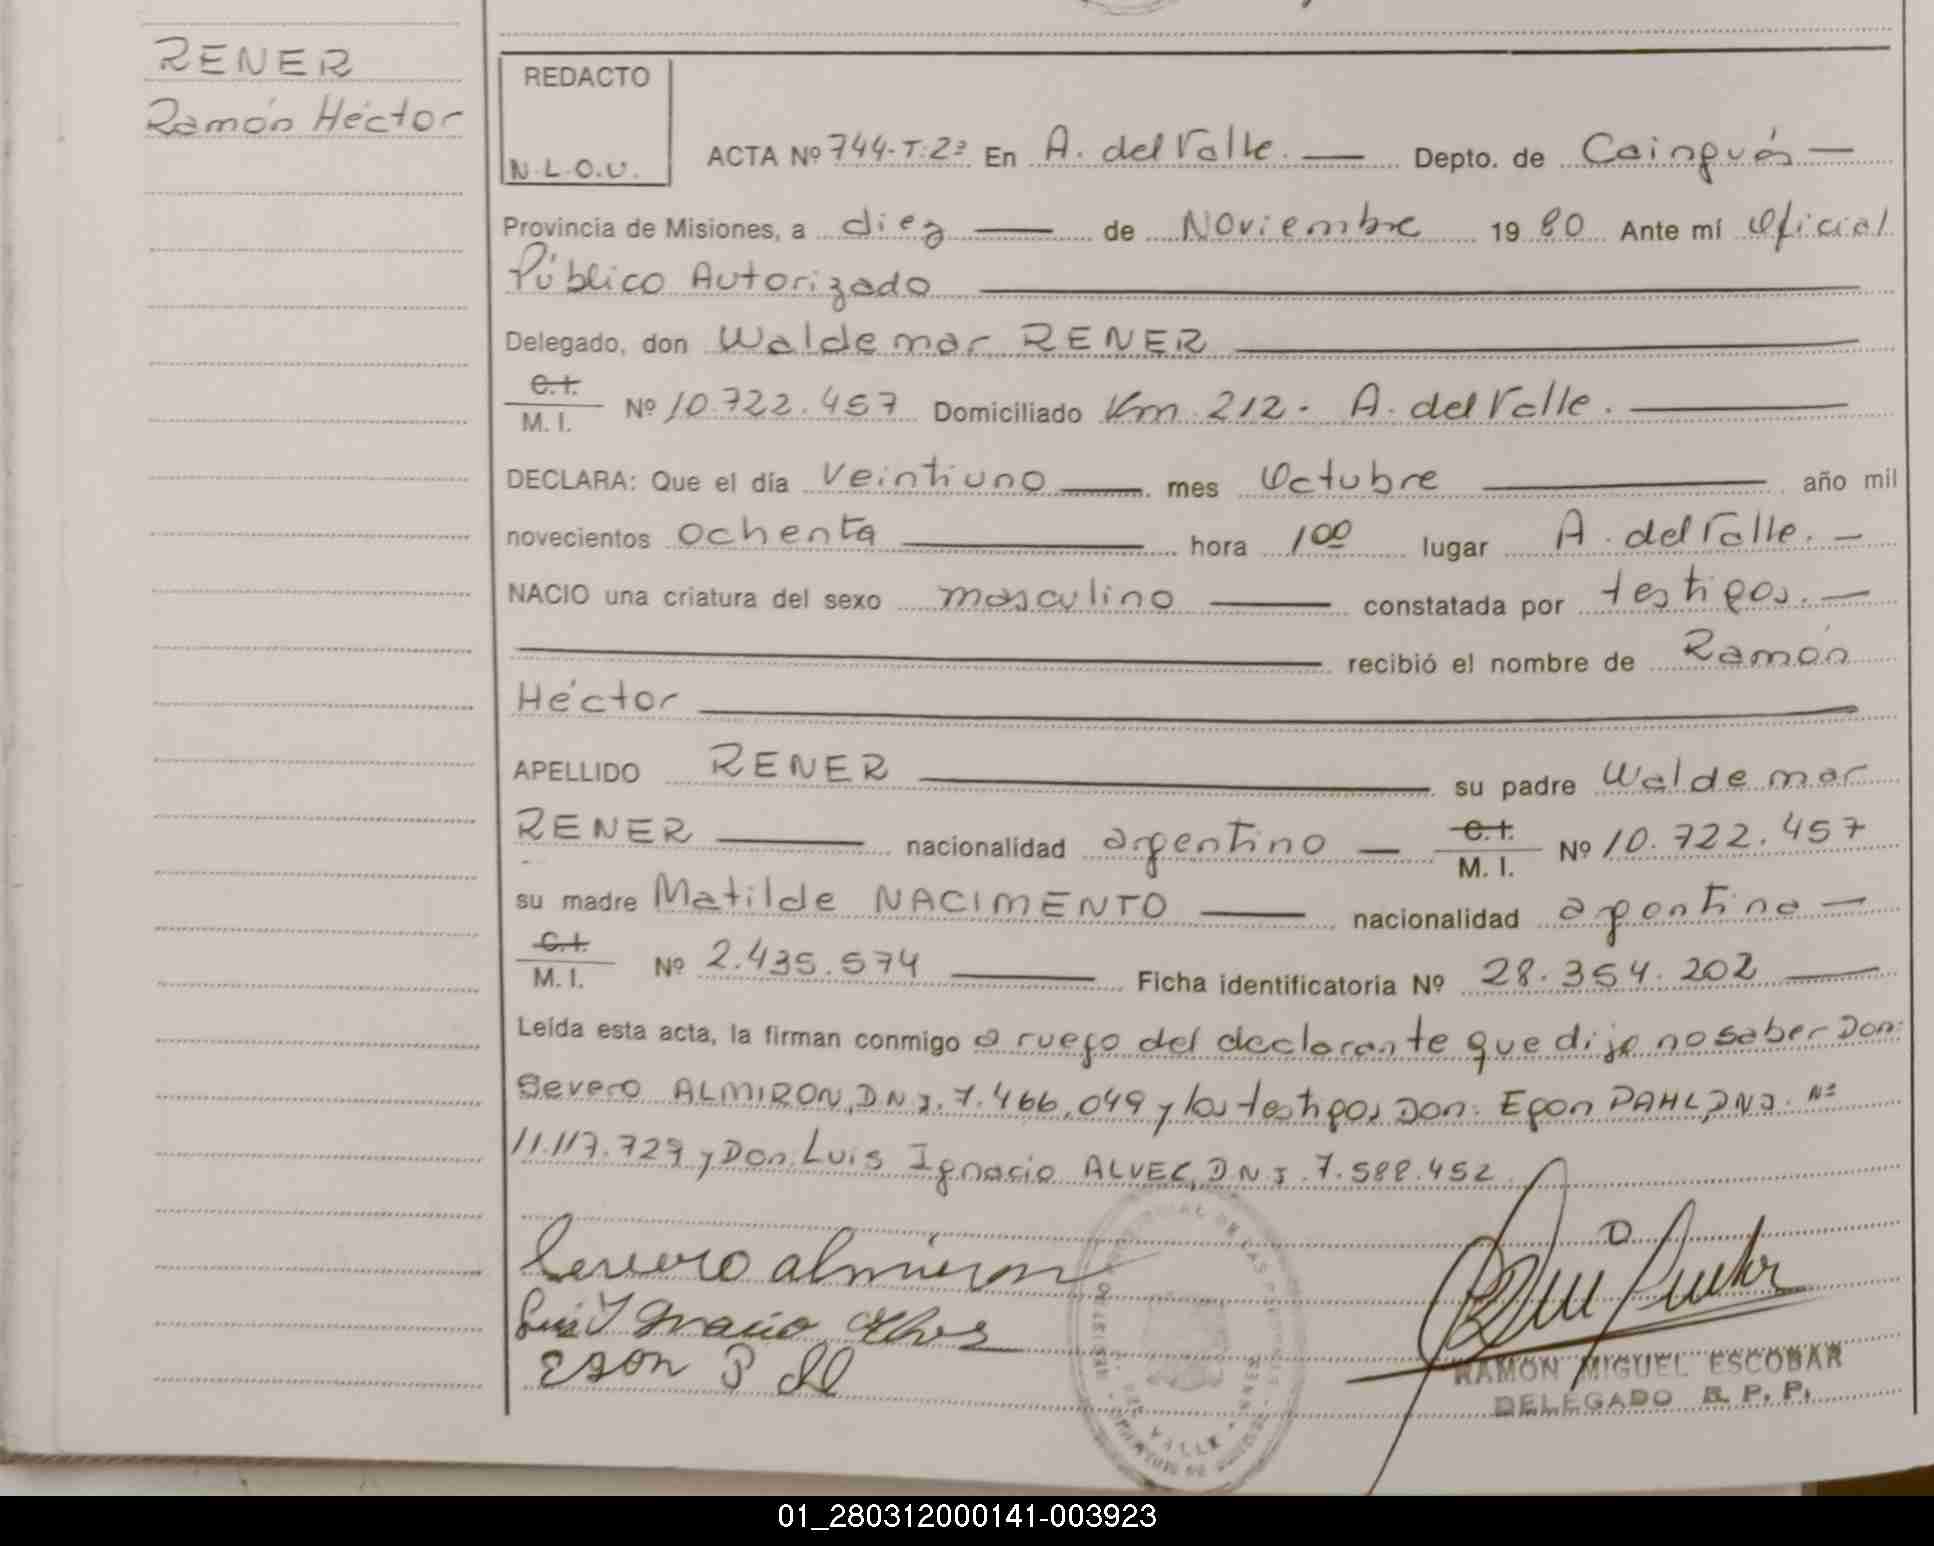 RENER
Ramón Héctor
REDACTO
N.L.O.U.
ACTA Nº 744-T:2º En A. del Valle. — Depto. de Cainguás —
Provincia de Misiones, a diez — de Noviembre 1980 Ante mí Oficial
Público Autorizado
Delegado, don Waldemar RENER
C.I.
M. I. Nº 10.722.457 Domiciliado Km 212. A. del Valle.
DECLARA: Que el día veintiuno mes Octubre año mil
novecientos ochenta hora 1⁰⁰ lugar A. del Valle. —
NACIO una criatura del sexo masculino constatada por testigos. —
recibió el nombre de Ramón
Héctor
APELLIDO RENER su padre Waldemar
RENER nacionalidad argentino — C.I.
M. I. Nº 10.722.457
su madre Matilde NACIMENTO nacionalidad argentina —
C.I.
M. I. Nº 2.435.574 Ficha identificatoria Nº 28.354.202
Leída esta acta, la firman conmigo a ruego del declarante que dijo no saber Don:
Severo ALMIRON, D.N.I. 7.466.049 y los testigos Don: Egon PAHL, D.N.I. Nº
11.117.729 y Don. Luis Ignacio ALVEZ, D.N.I. 7.588.452
Severo almiron
Luis Ignacio Alves
Egon
RAMON MIGUEL ESCOBAR
DELEGADO R. P. P.
01_280312000141-003923